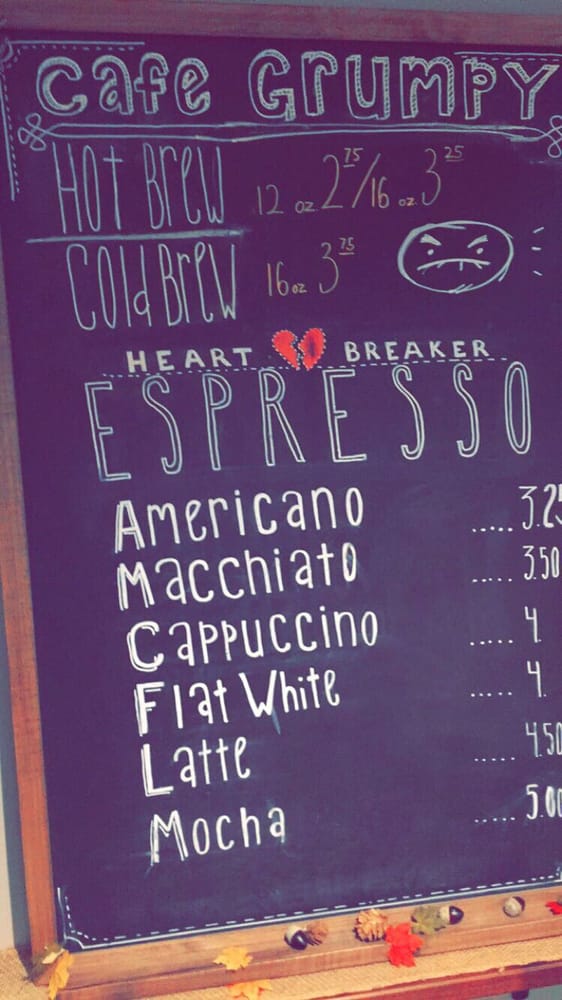 Cafe Grumpy
Hot Brew 12 oz. 2 75/16 oz. 3 25
Cold Brew 16 oz 3 75
HEART BREAKER
ESPRESSO
Americano ..... 3.25
Macchiato ..... 3.50
Cappuccino ..... 4.
Flat White ..... 4.
Latte ..... 4.50
Mocha ..... 5.00